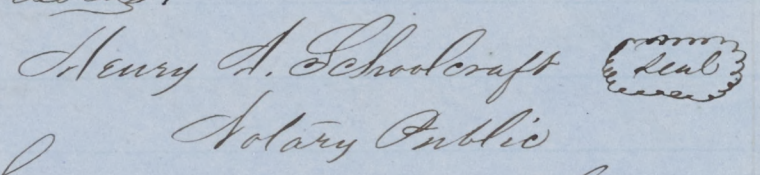 Henry A. Schoolcraft seal
Notary Public